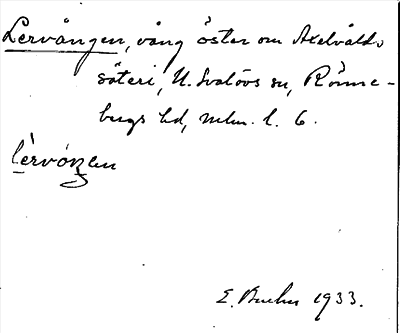 Lervången, vång öster om Axelvålds
säteri, N. Svalövs sn, Rönne-
bergs hd, Mlm. l. 6.
lèrvóŋen
E. Bruhn 1933.